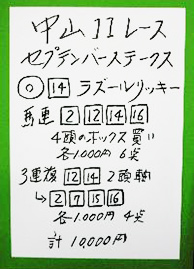 中山11レース
セプテンバーステークス
◎ 14 ラズールリッキー
馬連 2 12 14 16
4頭のボックス買い
各1,000円 6点
3連複 12 14 2頭軸
→ 2 7 15 16
各1,000円 4点
計 10,000円